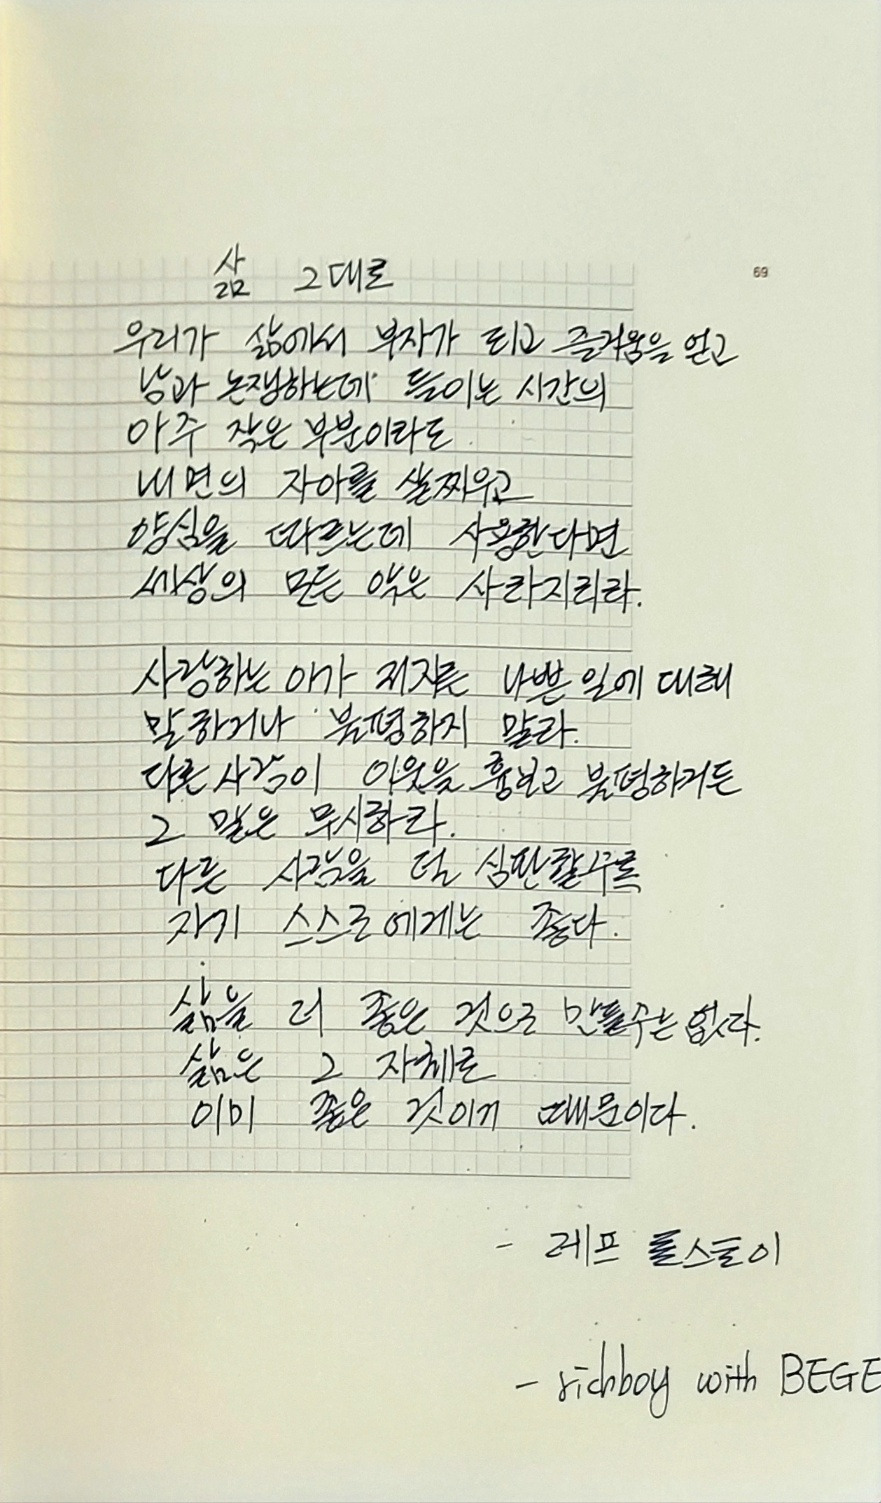 삶 그대로
69
우리가 삶에서 부자가 되고 즐거움을 얻고
남과 논쟁하는데 들이는 시간의
아주 작은 부분이라도
내면의 자아를 살찌우고
양심을 따르는데 사용한다면
세상의 모든 악은 사라지리라.
사랑하는 이가 저지른 나쁜 일에 대해
말하거나 불평하지 말라.
다른 사람이 이웃을 흉보고 불평하거든
그 말은 무시하라.
다른 사람을 덜 심판할수록
자기 스스로에게는 좋다.
삶을 더 좋은 것으로 만들수는 없다.
삶은 그 자체로
이미 좋은 것이기 때문이다.
- 레프 톨스토이
- richboy with BEGE